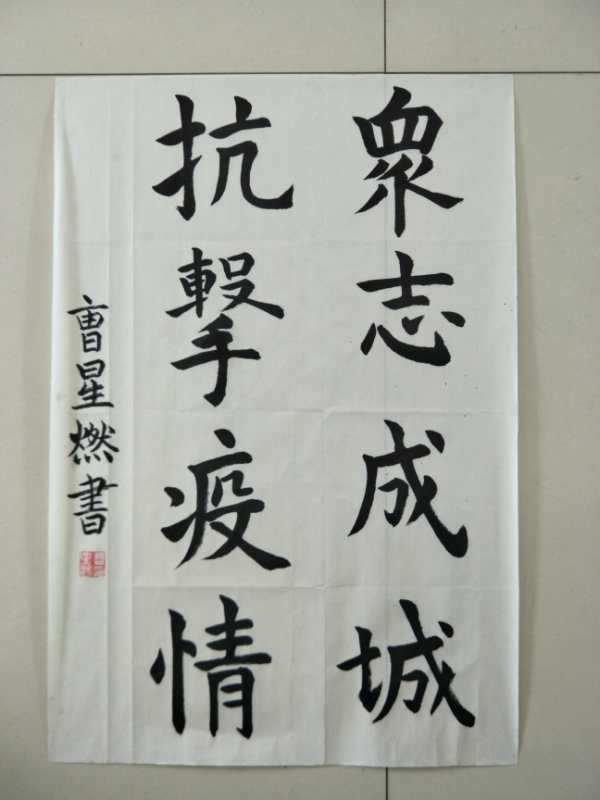 眾志成城
抗擊疫情
曹星燃書